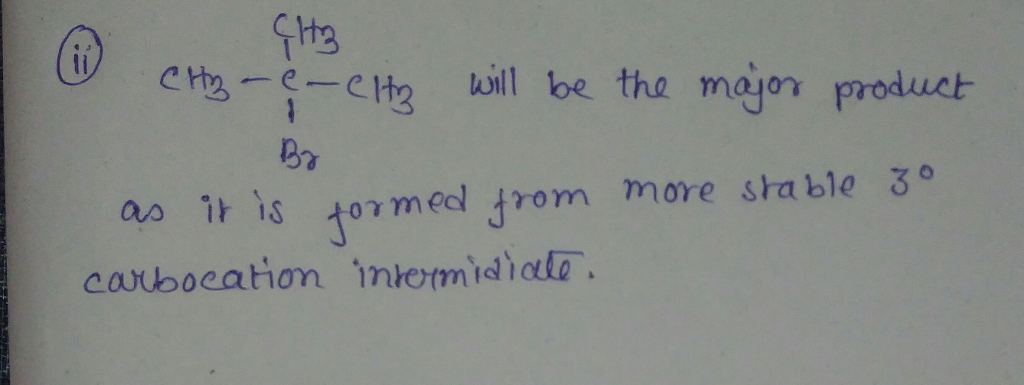 (ii)
CH3
CH3 - C - CH3 will be the major product
Br
as it is formed from more stable 3°
carbocation intermidiate.